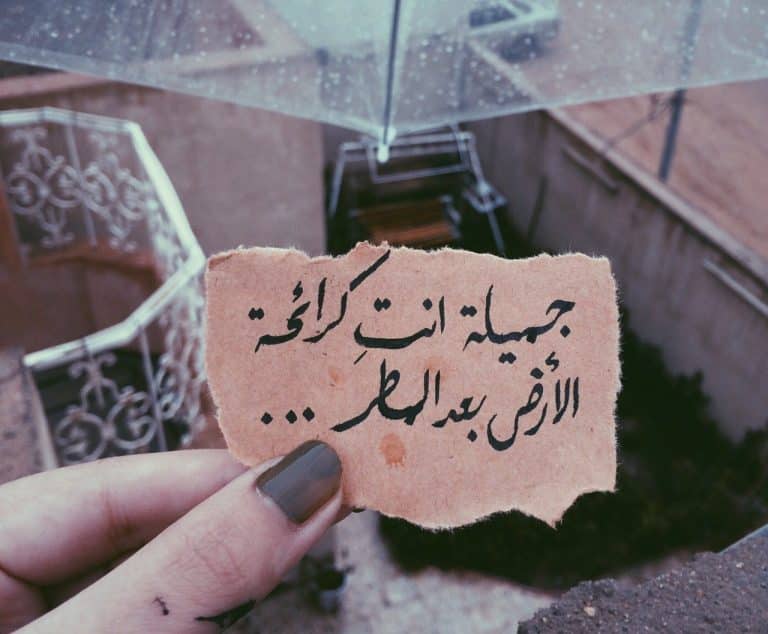 جميلة انتِ كرائحة
الأرض بعد المطر ...